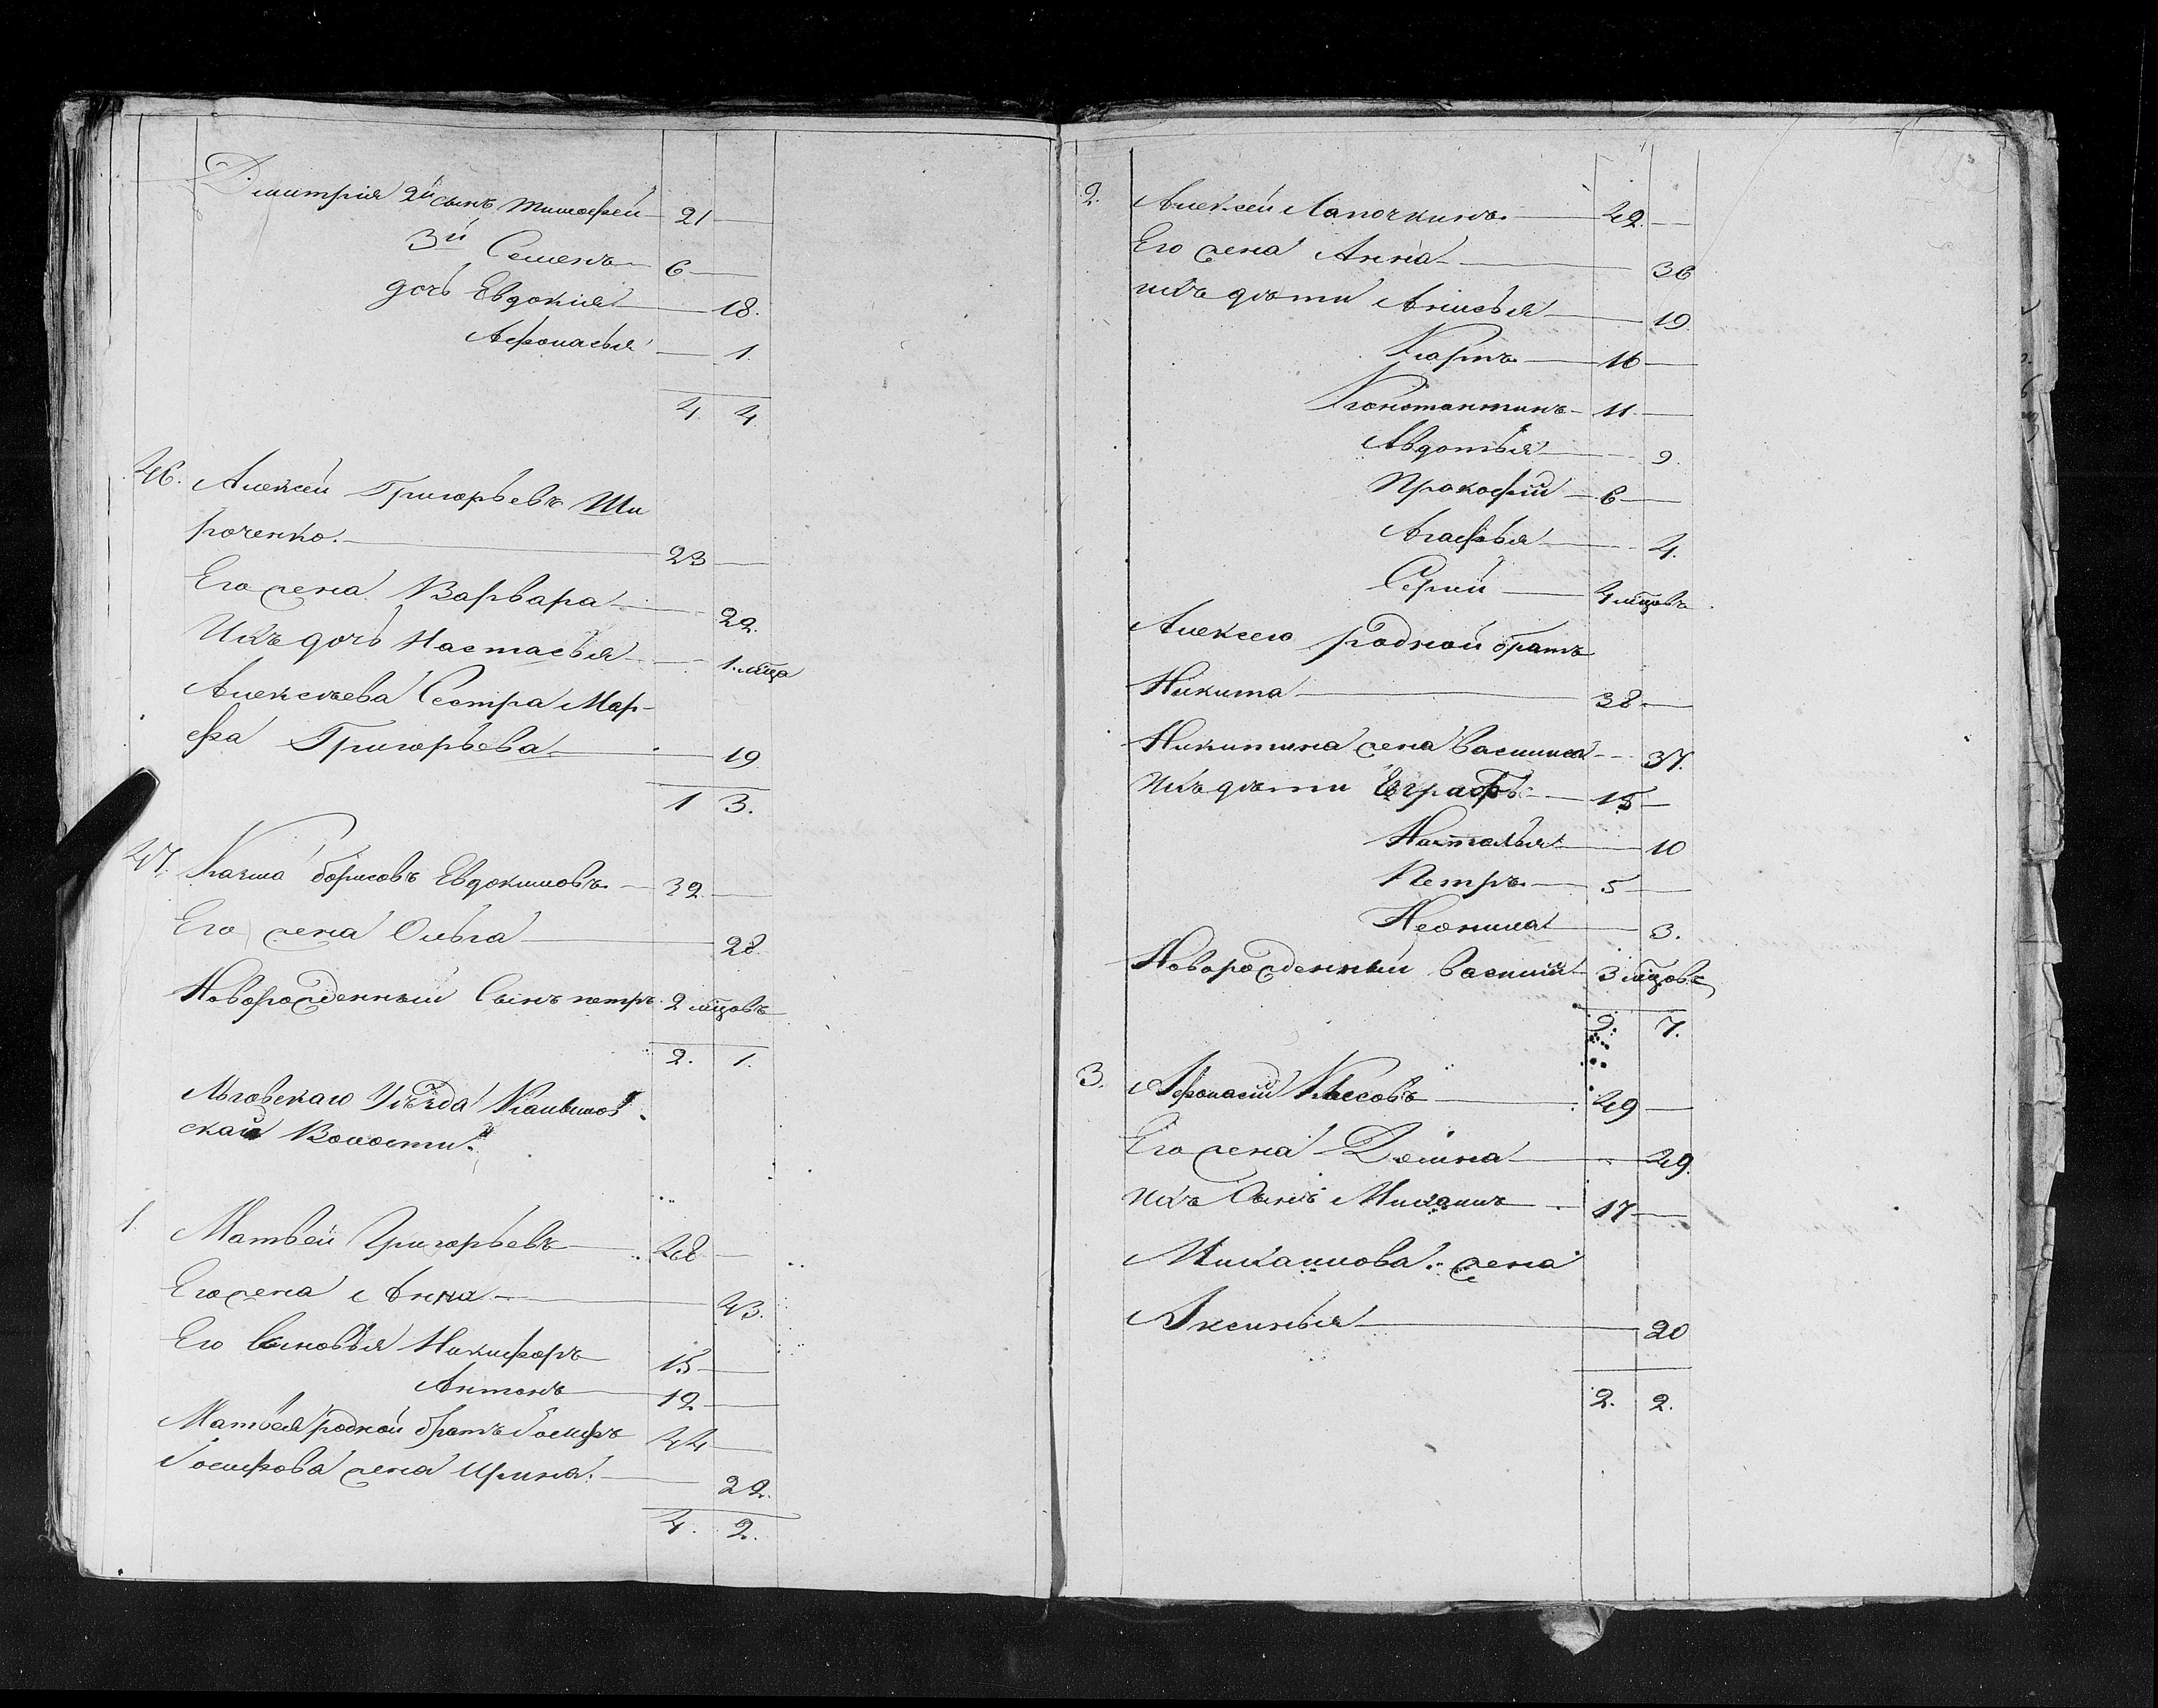 Дмитрія 2й сынъ Тимофей — 21 —
3й Семенъ — 6 —
дочь Евдокія — 18.
Афонасья — 1.
4. 4.
46. Алексей Григорьевъ Ши
роченко. — 23 —
Его жена Варвара — 22.
Ихъ дочь Настасья — 1. мца
Алексѣева Сестра Мар-
фа Григорьева — 19.
1 3.
47. Казма борисовъ Евдокимовъ — 32. —
Его жена Ольга — 28.
Новорожденный Сынъ петръ 2 мцовъ
2. 1.
Льговскаго Уѣзда
ской Волости.
1. Матвей Григорьевъ — 48 —
Его жена Анна — 43.
Его Сыновья Никифоръ 15 —
Антонъ — 12 —
Матвея родной братъ Іосифъ 44 —
Іосифова жена Ирина. — 22.
4. 2.
2. Алексей Лапочкинъ — 42. —
Его жена Анна — 36
ихъ дѣти Анисья — 19
Карпъ — 16 —
Константинъ — 11 —
Авдотья — 9.
Прокофій — 6 —
Агафья — 4.
Сергій — 4 мцовъ
Алексею родной братъ
Никита — 38 —
Никитина жена Василиса — 37.
Ихъ дѣти Евграфъ — 15 —
Наталья — 10
Петръ — 5 —
Неонила — 3.
Новорожденный Василій — 3 мцовъ
9. 7.
3. Афонасій — 49 —
Его жена Домна — 49.
Ихъ Сынъ Михаилъ — 17 —
Михаилова жена
Аксинья — 20
2. 2.